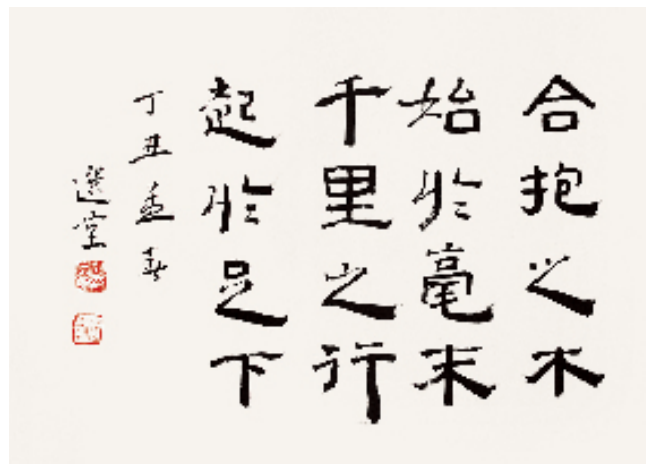 合抱之木
始於毫末
千里之行
起於足下
丁丑孟春
選堂